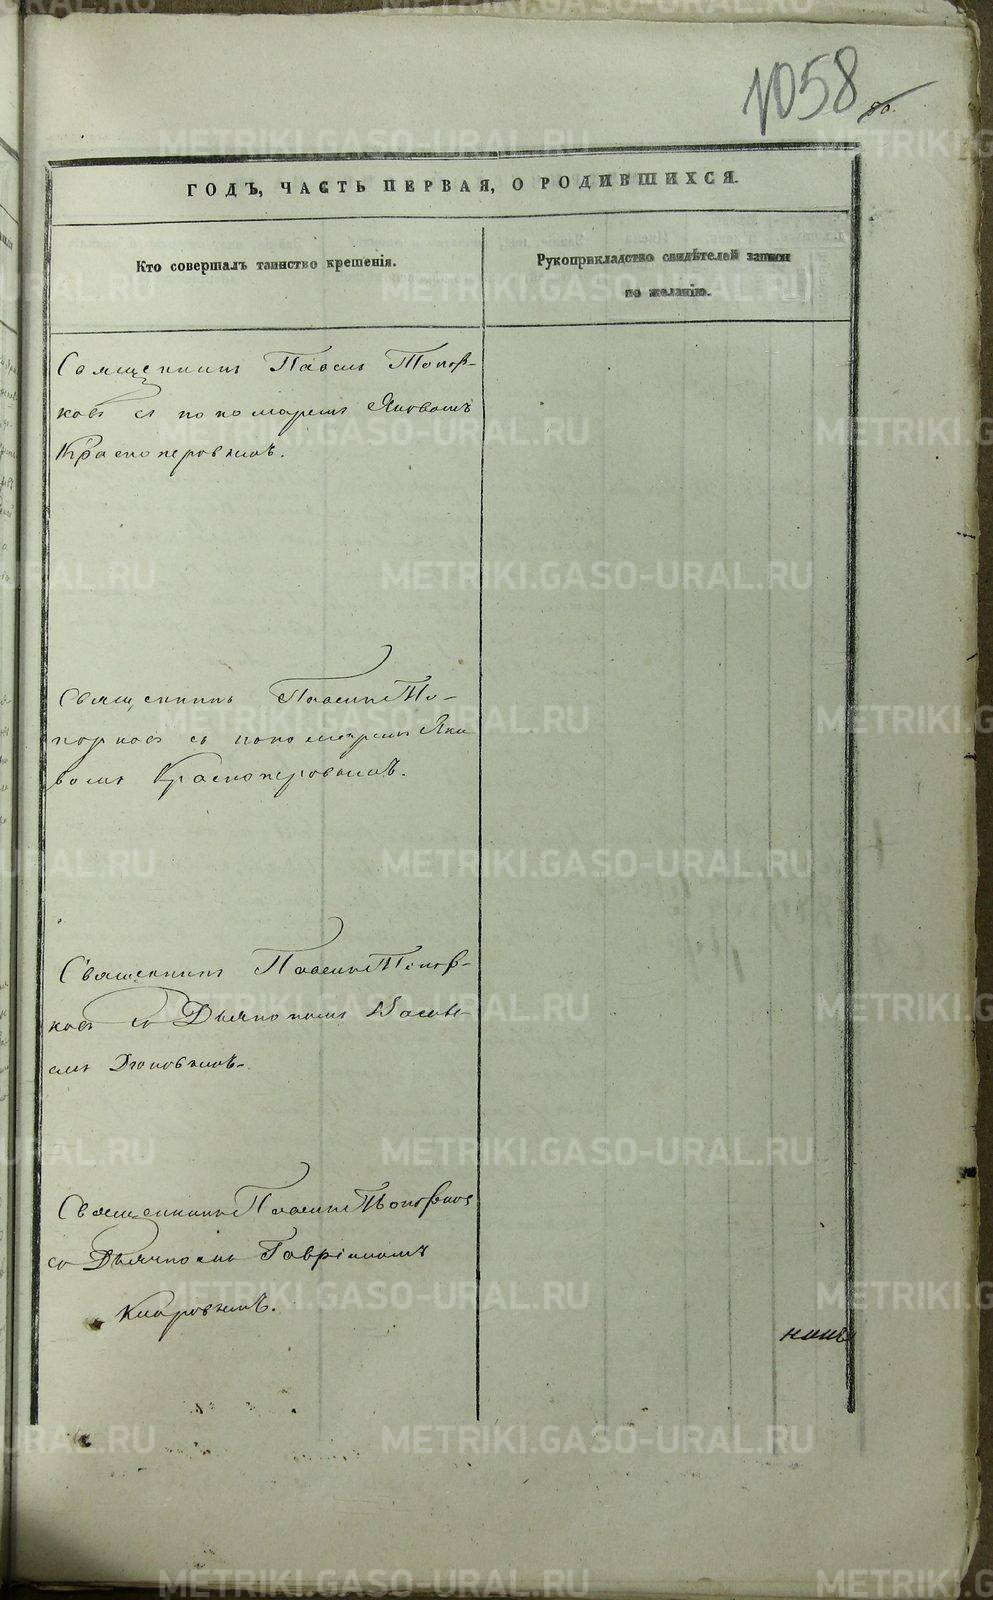 1058
80.
ГОДЪ, ЧАСТЬ ПЕРВАЯ, О РОДИВШИХСЯ.
Кто совершалъ таинство крещенія.
Рукоприкладство свидѣтелей записи
по желанію.
Священникъ Павелъ Топор-
ковъ съ пономаремъ Яковомъ
Красноперовымъ.
Священникъ Павелъ То-
порковъ съ пономаремъ Яко
вомъ Красноперовымъ.
Священникъ Павелъ Топор-
ковъ со Дьякономъ Василь-
емъ
Священникъ Павелъ Топорков
со Дьячкомъ Гавріиломъ
Кипровымъ.
METRIKI.GASO-URAL.RU